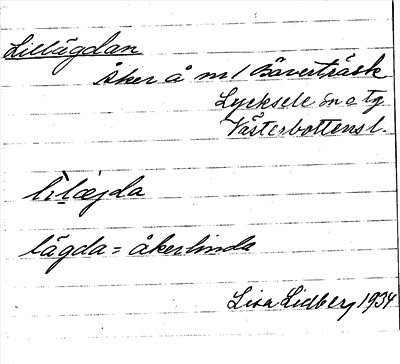 Lillägdan
åker å nr 1 Bäverträsk
Lycksele sn o tg
Västerbottens l.
lìlæɟda
lägda = åkerlinda
Lisa Lidberg 1934